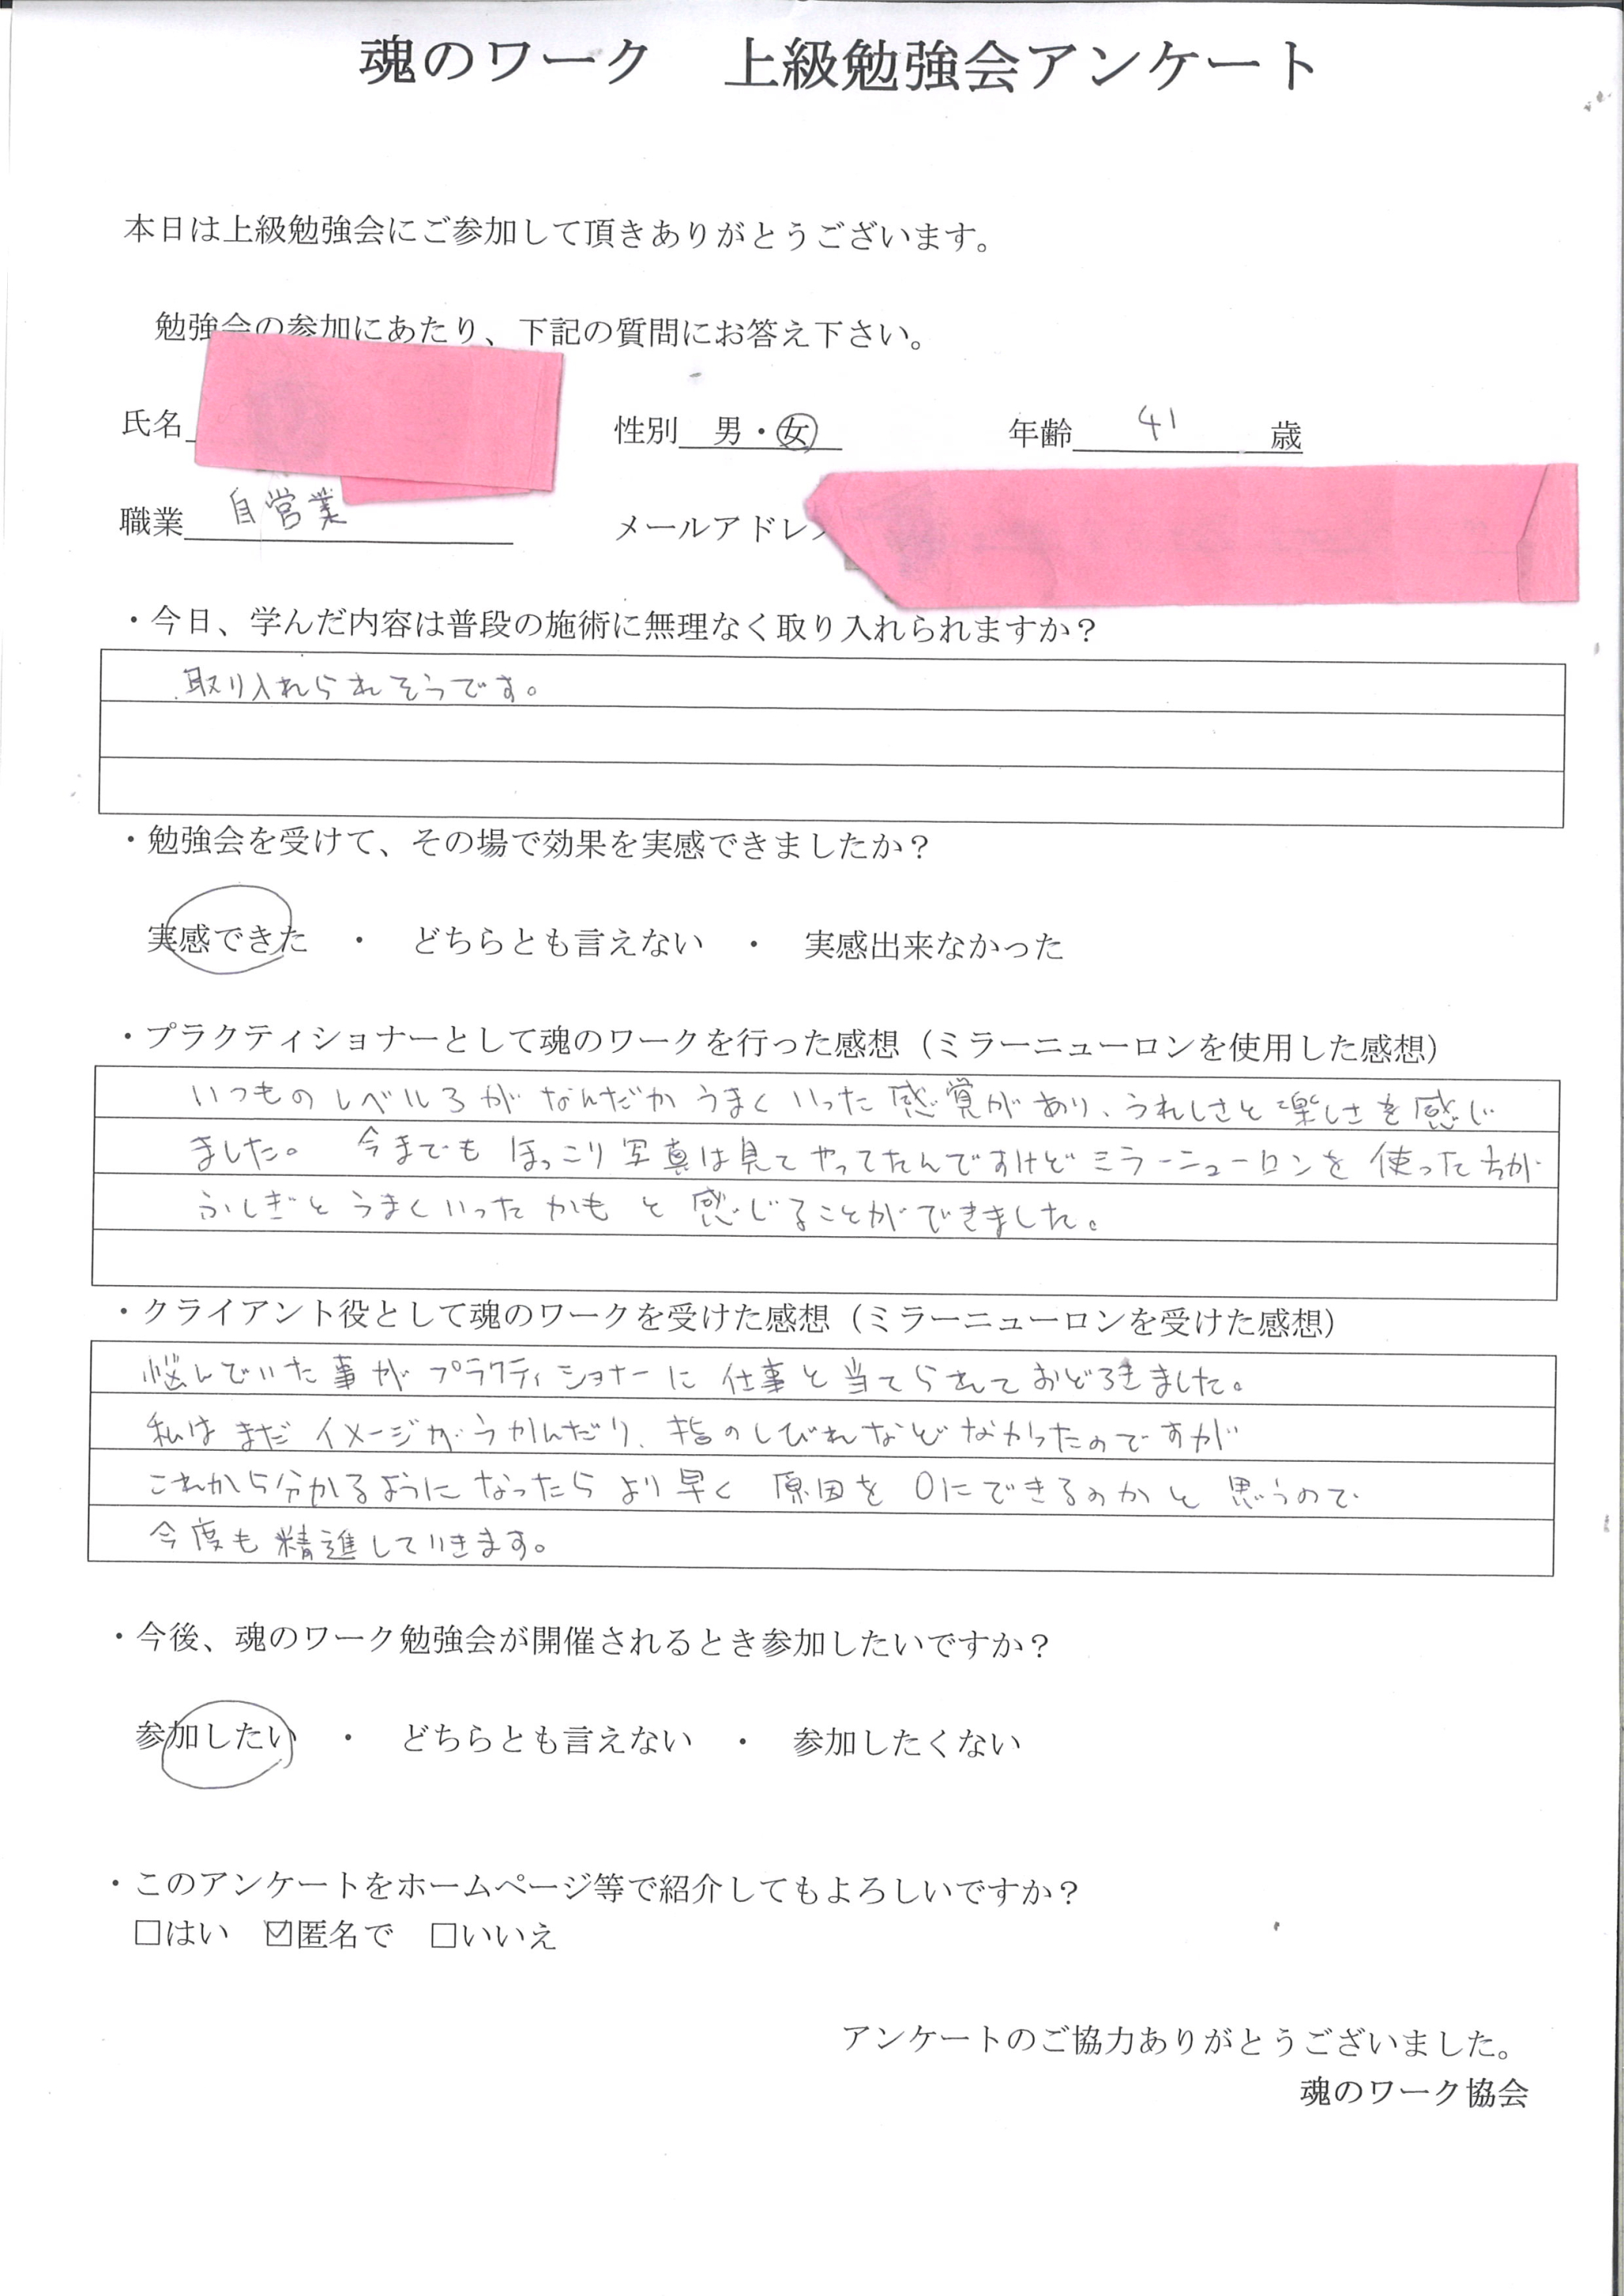 魂のワーク　上級勉強会アンケート
本日は上級勉強会にご参加して頂きありがとうございます。
勉強会の参加にあたり、下記の質問にお答え下さい。
氏名　性別　男・女　年齢　41　歳
職業　自営業　メールアドレス
・今日、学んだ内容は普段の施術に無理なく取り入れられますか？
取り入れられそうです。
・勉強会を受けて、その場で効果を実感できましたか？
実感できた　・　どちらとも言えない　・　実感出来なかった
・プラクティショナーとして魂のワークを行った感想（ミラーニューロンを使用した感想）
いつものレベル3がなんだかうまくいった感覚があり、うれしさと楽しさを感じ
ました。　今までもほっこり写真は見てやってたんですけどミラーニューロンを使った方が
ふしぎとうまくいったかもと感じることができました。
・クライアント役として魂のワークを受けた感想（ミラーニューロンを受けた感想）
悩んでいた事がプラクティショナーに仕事と当てられておどろきました。
私はまだイメージがうかんだり、指のしびれなどなかったのですが
これから分かるようになったらより早く原因を0にできるのかと思うので
今度も精進していきます。
・今後、魂のワーク勉強会が開催されるとき参加したいですか？
参加したい　・　どちらとも言えない　・　参加したくない
・このアンケートをホームページ等で紹介してもよろしいですか？
□はい　☑匿名で　□いいえ
アンケートのご協力ありがとうございました。
魂のワーク協会